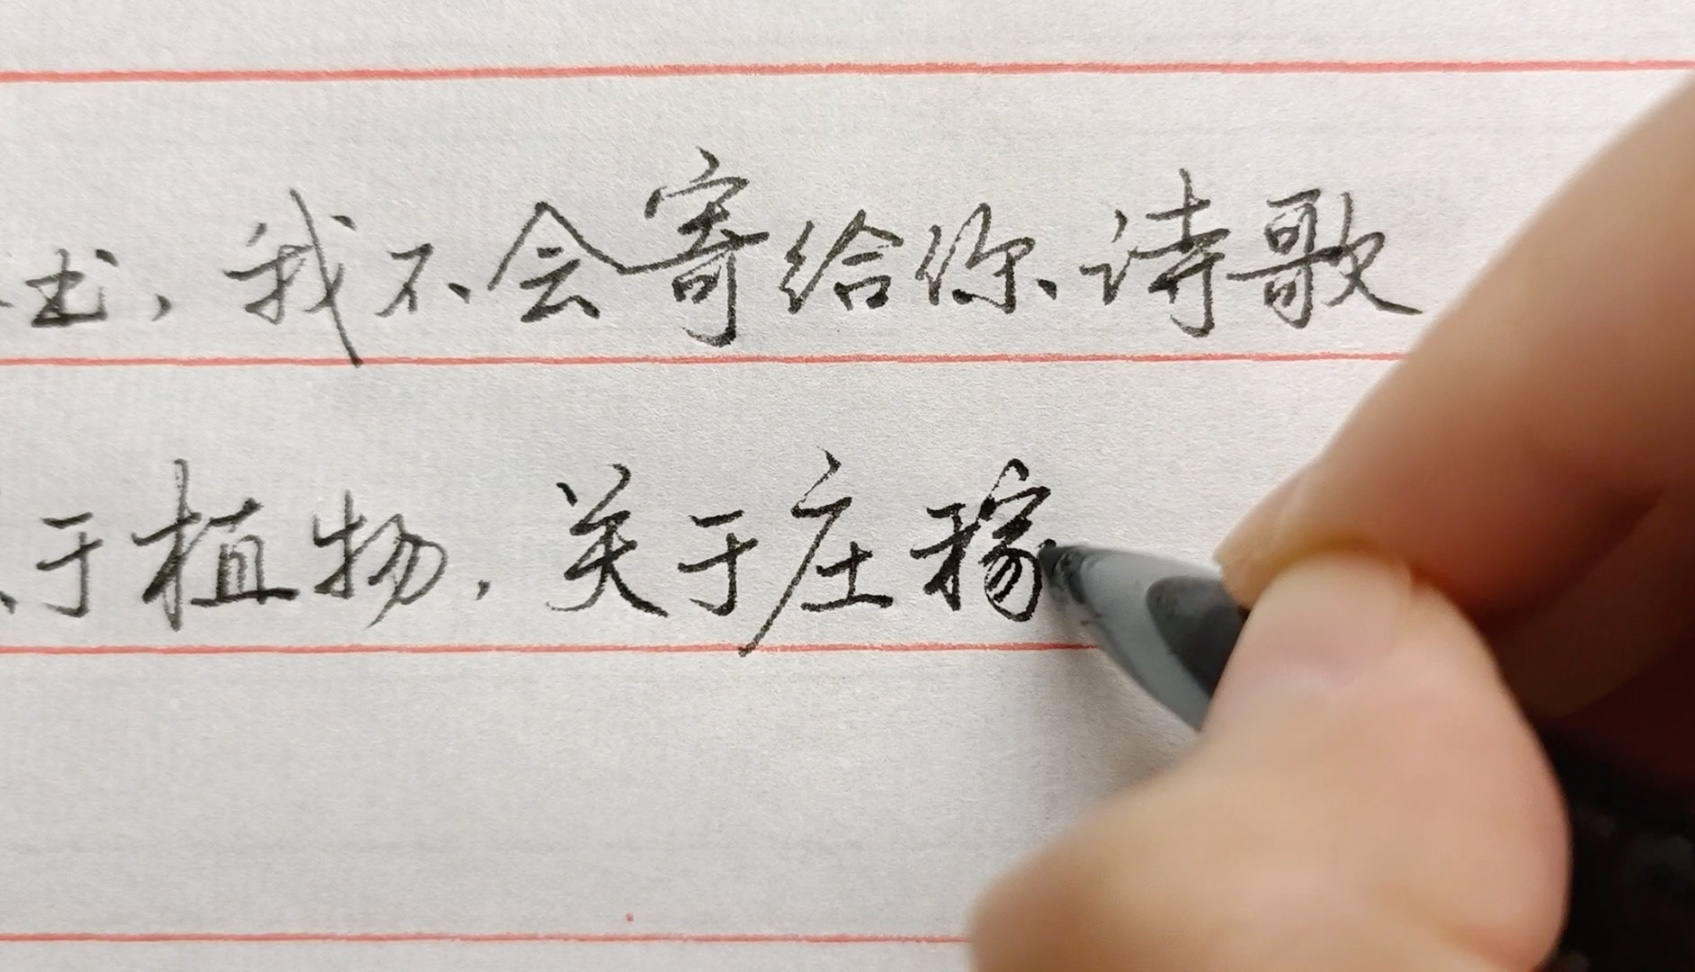 ,我不会寄给你诗歌
于植物,关于庄稼